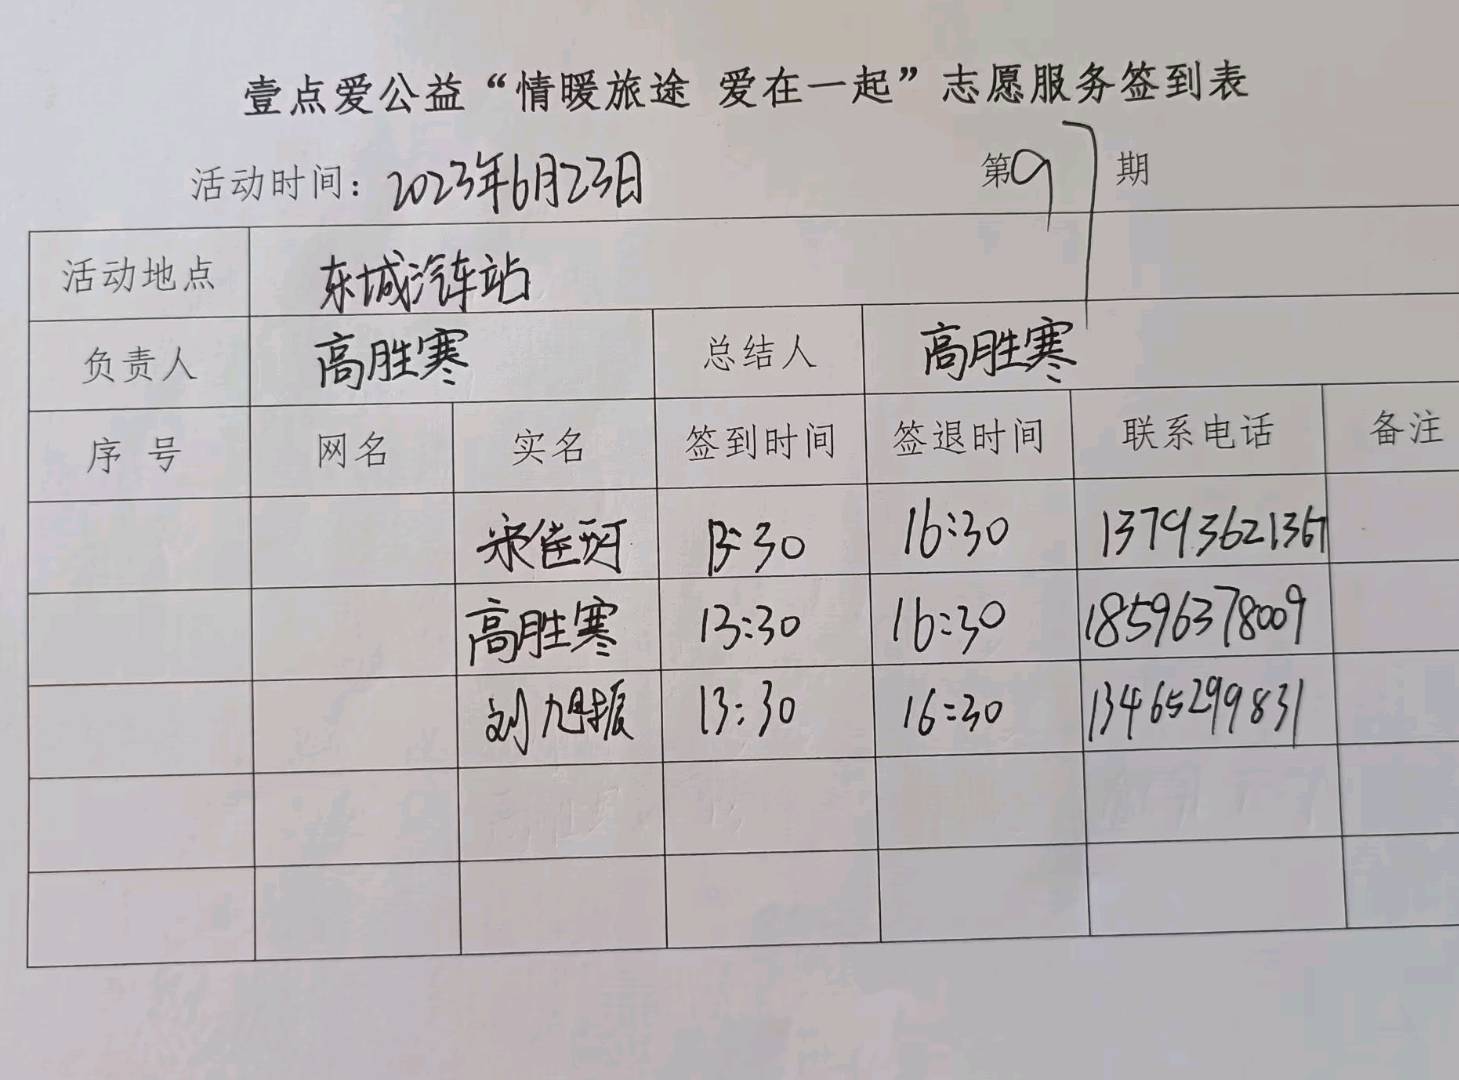 壹点爱公益“情暖旅途 爱在一起”志愿服务签到表
活动时间：2023年6月23日 第97期
活动地点 东城汽车站
负责人 高胜寒 总结人 高胜寒
序号 网名 实名 签到时间 签退时间 联系电话 备注
宋佳珂 13:30 16:30 13793621367
高胜寒 13:30 16:30 18596378009
刘旭振 13:30 16:30 13465299831